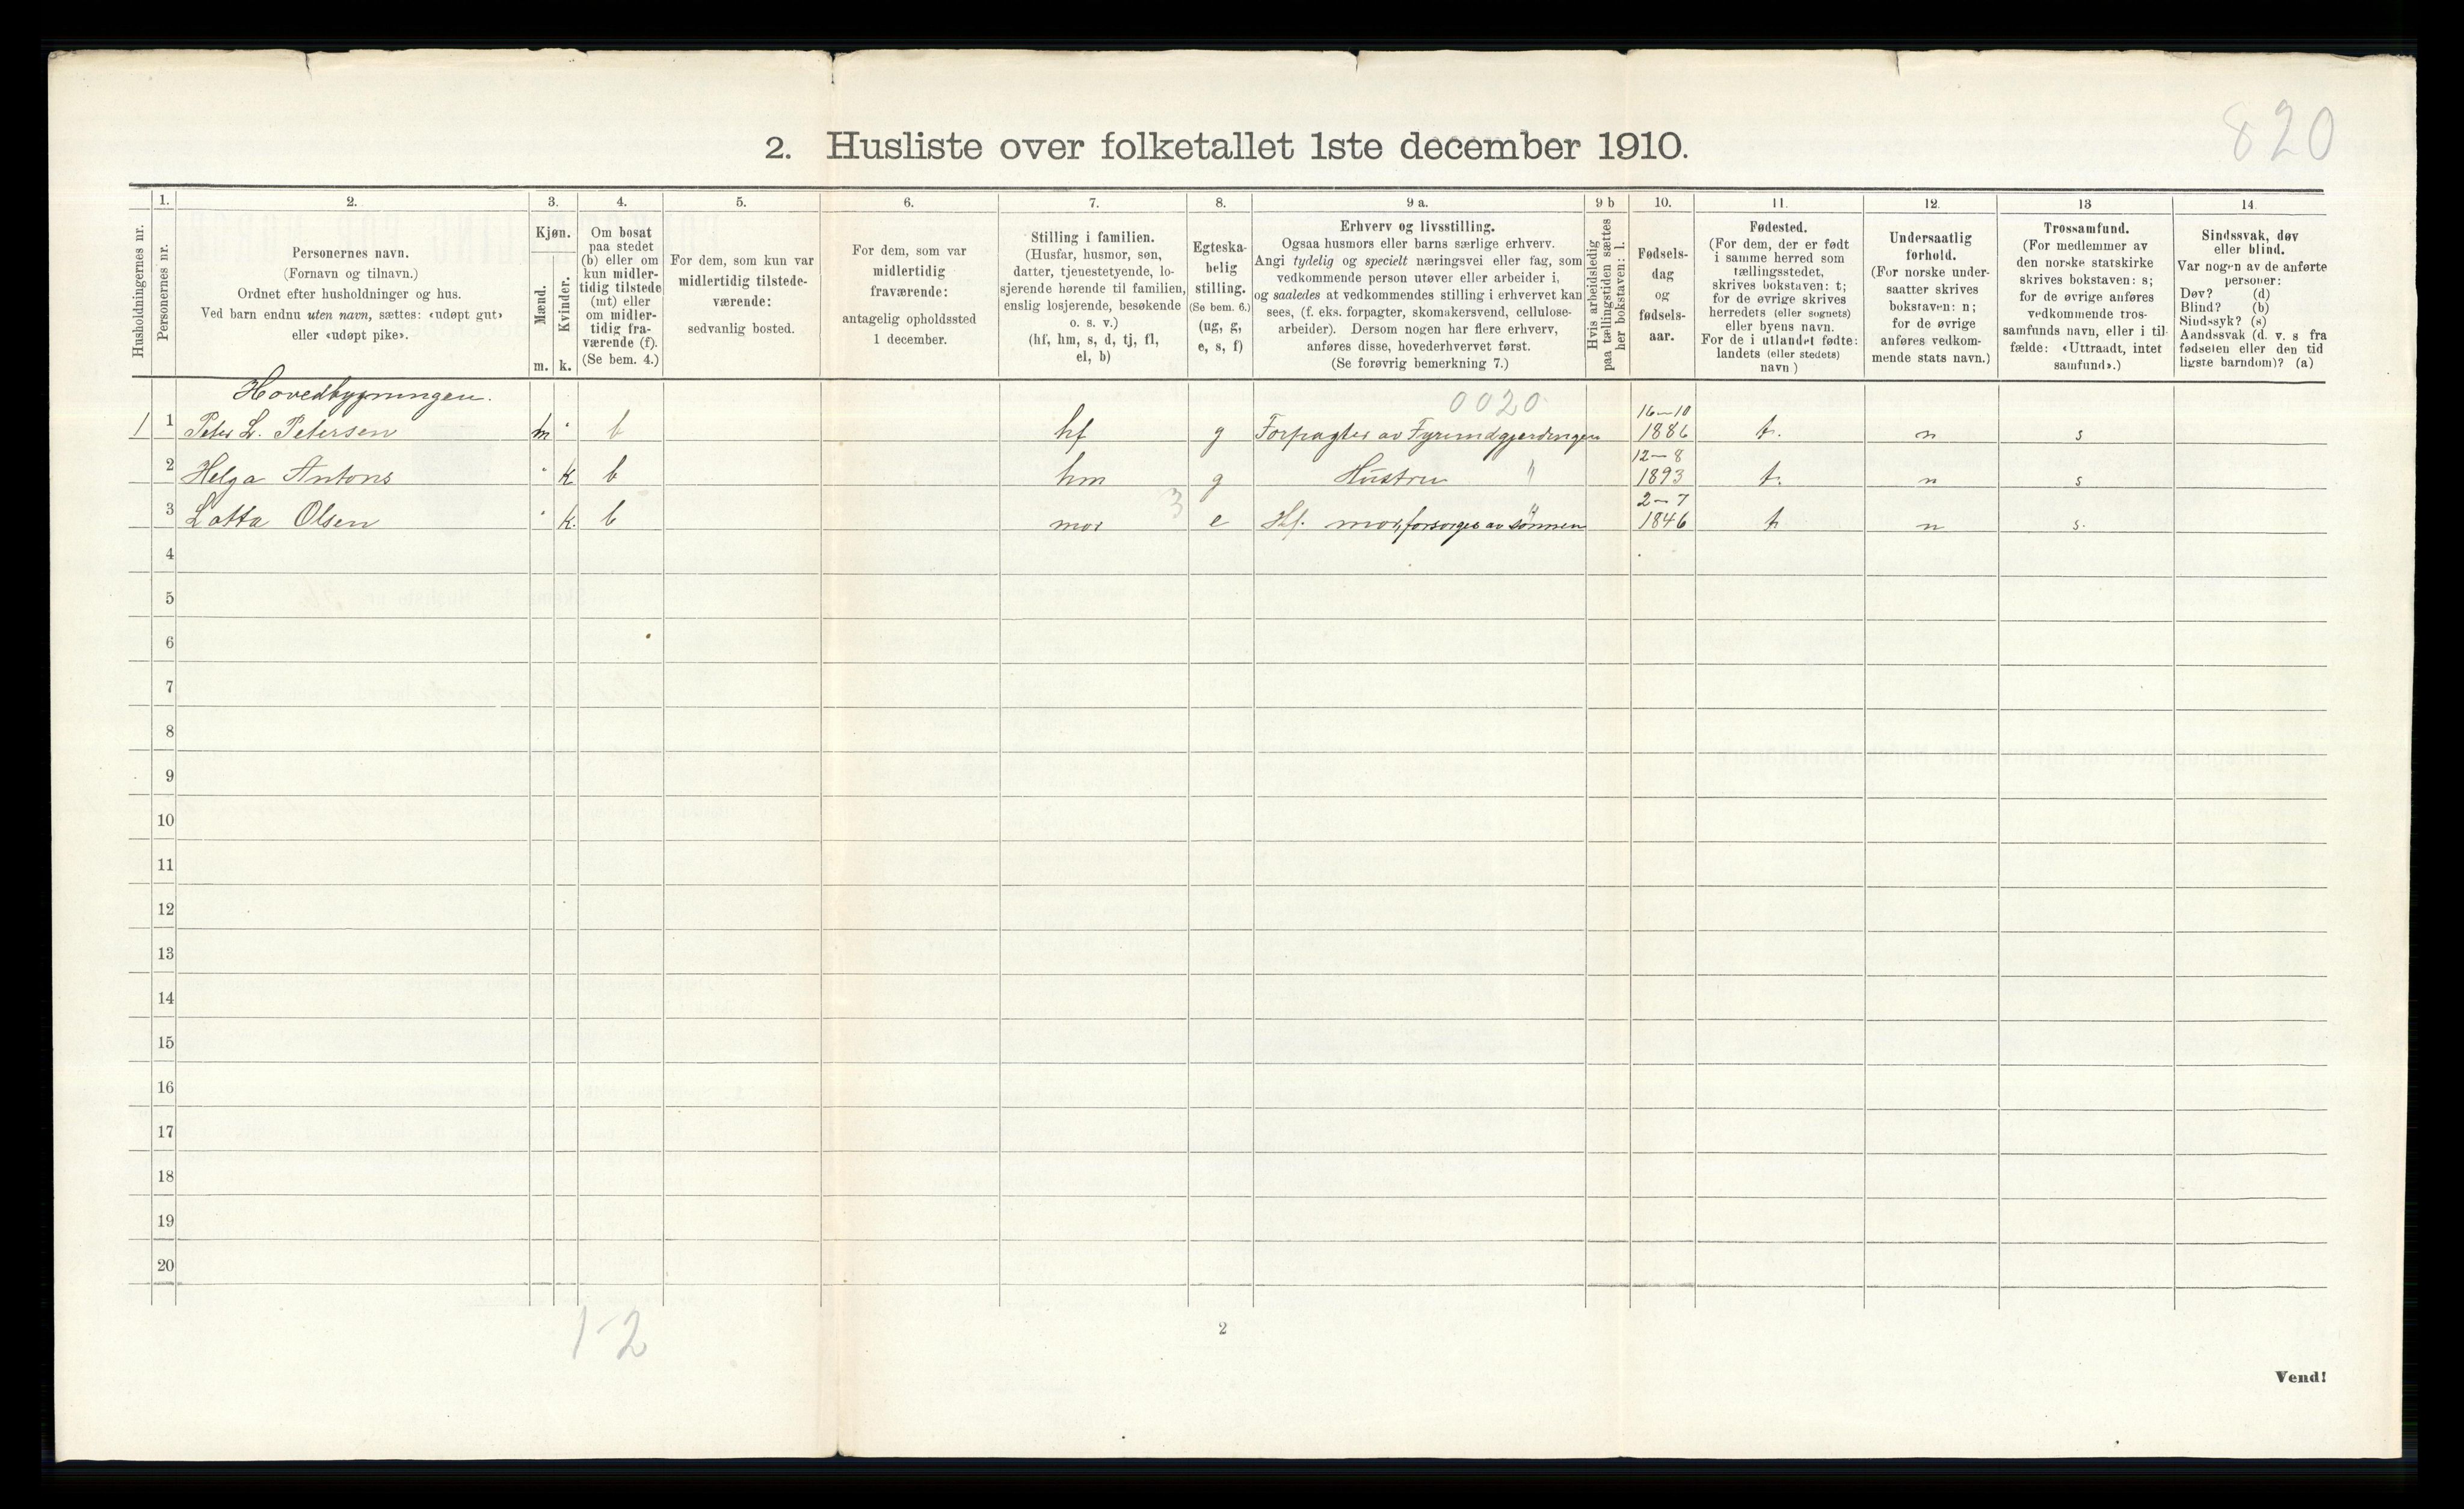 820
2. Husliste over folketallet 1ste december 1910.
Husholdningernes nr.
1.
Personernes nr.
2.
Personernes navn.
(Fornavn og tilnavn.)
Ordnet efter husholdninger og hus.
Ved barn endnu uten navn, sættes: «udøpt gut»
eller «udøpt pike».
3.
Kjøn.
Mænd.
Kvinder.
m. k.
4.
Om bosat
paa stedet
(b) eller om
kun midler-
tidig tilstede
(mt) eller
om midler-
tidig fra-
værende (f).
(Se bem. 4.)
5.
For dem, som kun var
midlertidig tilstede-
værende:
sedvanlig bosted.
6.
For dem, som var
midlertidig
fraværende:
antagelig opholdssted
1 december.
7.
Stilling i familien.
(Husfar, husmor, søn,
datter, tjenestetyende, lo-
sjerende hørende til familien,
enslig losjerende, besøkende
o. s. v.)
(hf, hm, s, d, tj, fl,
el, b)
8.
Egteska-
belig
stilling.
(Se bem. 6.)
(ug, g,
e, s, f)
9 a.
Erhverv og livsstilling.
Ogsaa husmors eller barns særlige erhverv.
Angi tydelig og specielt næringsvei eller fag, som
vedkommende person utøver eller arbeider i,
og saaledes at vedkommendes stilling i erhvervet kan
sees, (f. eks. forpagter, skomakersvend, cellulose-
arbeider). Dersom nogen har flere erhverv,
anføres disse, hovederhvervet først.
(Se forøvrig bemerkning 7.)
9 b
Hvis arbeidsledig
paa tællingstiden sættes
her bokstaven: l.
10.
Fødsels-
dag
og
fødsels-
aar.
11.
Fødested.
(For dem, der er født
i samme herred som
tællingsstedet,
skrives bokstaven: t;
for de øvrige skrives
herredets (eller sognets)
eller byens navn.
For de i utlandet fødte:
landets (eller stedets)
navn )
12.
Undersaatlig
forhold.
(For norske under-
saatter skrives
bokstaven: n;
for de øvrige
anføres vedkom-
mende stats navn.)
13
Trossamfund.
(For medlemmer av
den norske statskirke
skrives bokstaven: s;
for de øvrige anføres
vedkommende tros-
samfunds navn, eller i til-
fælde: «Uttraadt, intet
samfund».)
14.
Sindssvak, døv
eller blind.
Var nogen av de anførte
personer:
Døv? (d)
Blind? (b)
Sindssyk? (s)
Aandssvak (d. v. s fra
fødselen eller den tid
ligste barndom)? (a)
Hovedbygningen.
0020
1 1 Peter L. Petersen m " b hf g Forpagter av Fyrundgjerdingen 16-10 1886 t. n s
2 Helga Antons " k b hm g Hustru " 12-8 1893 t. n s
3 Lotta Olsen " k. b mor 3 e Hf. mor, forsørges av sønnen " 2-7 1846 t n s.
4
5
6
7
8
9
10
11
12
13
14
15
16
17
18
19
20
1-2
2
Vend!